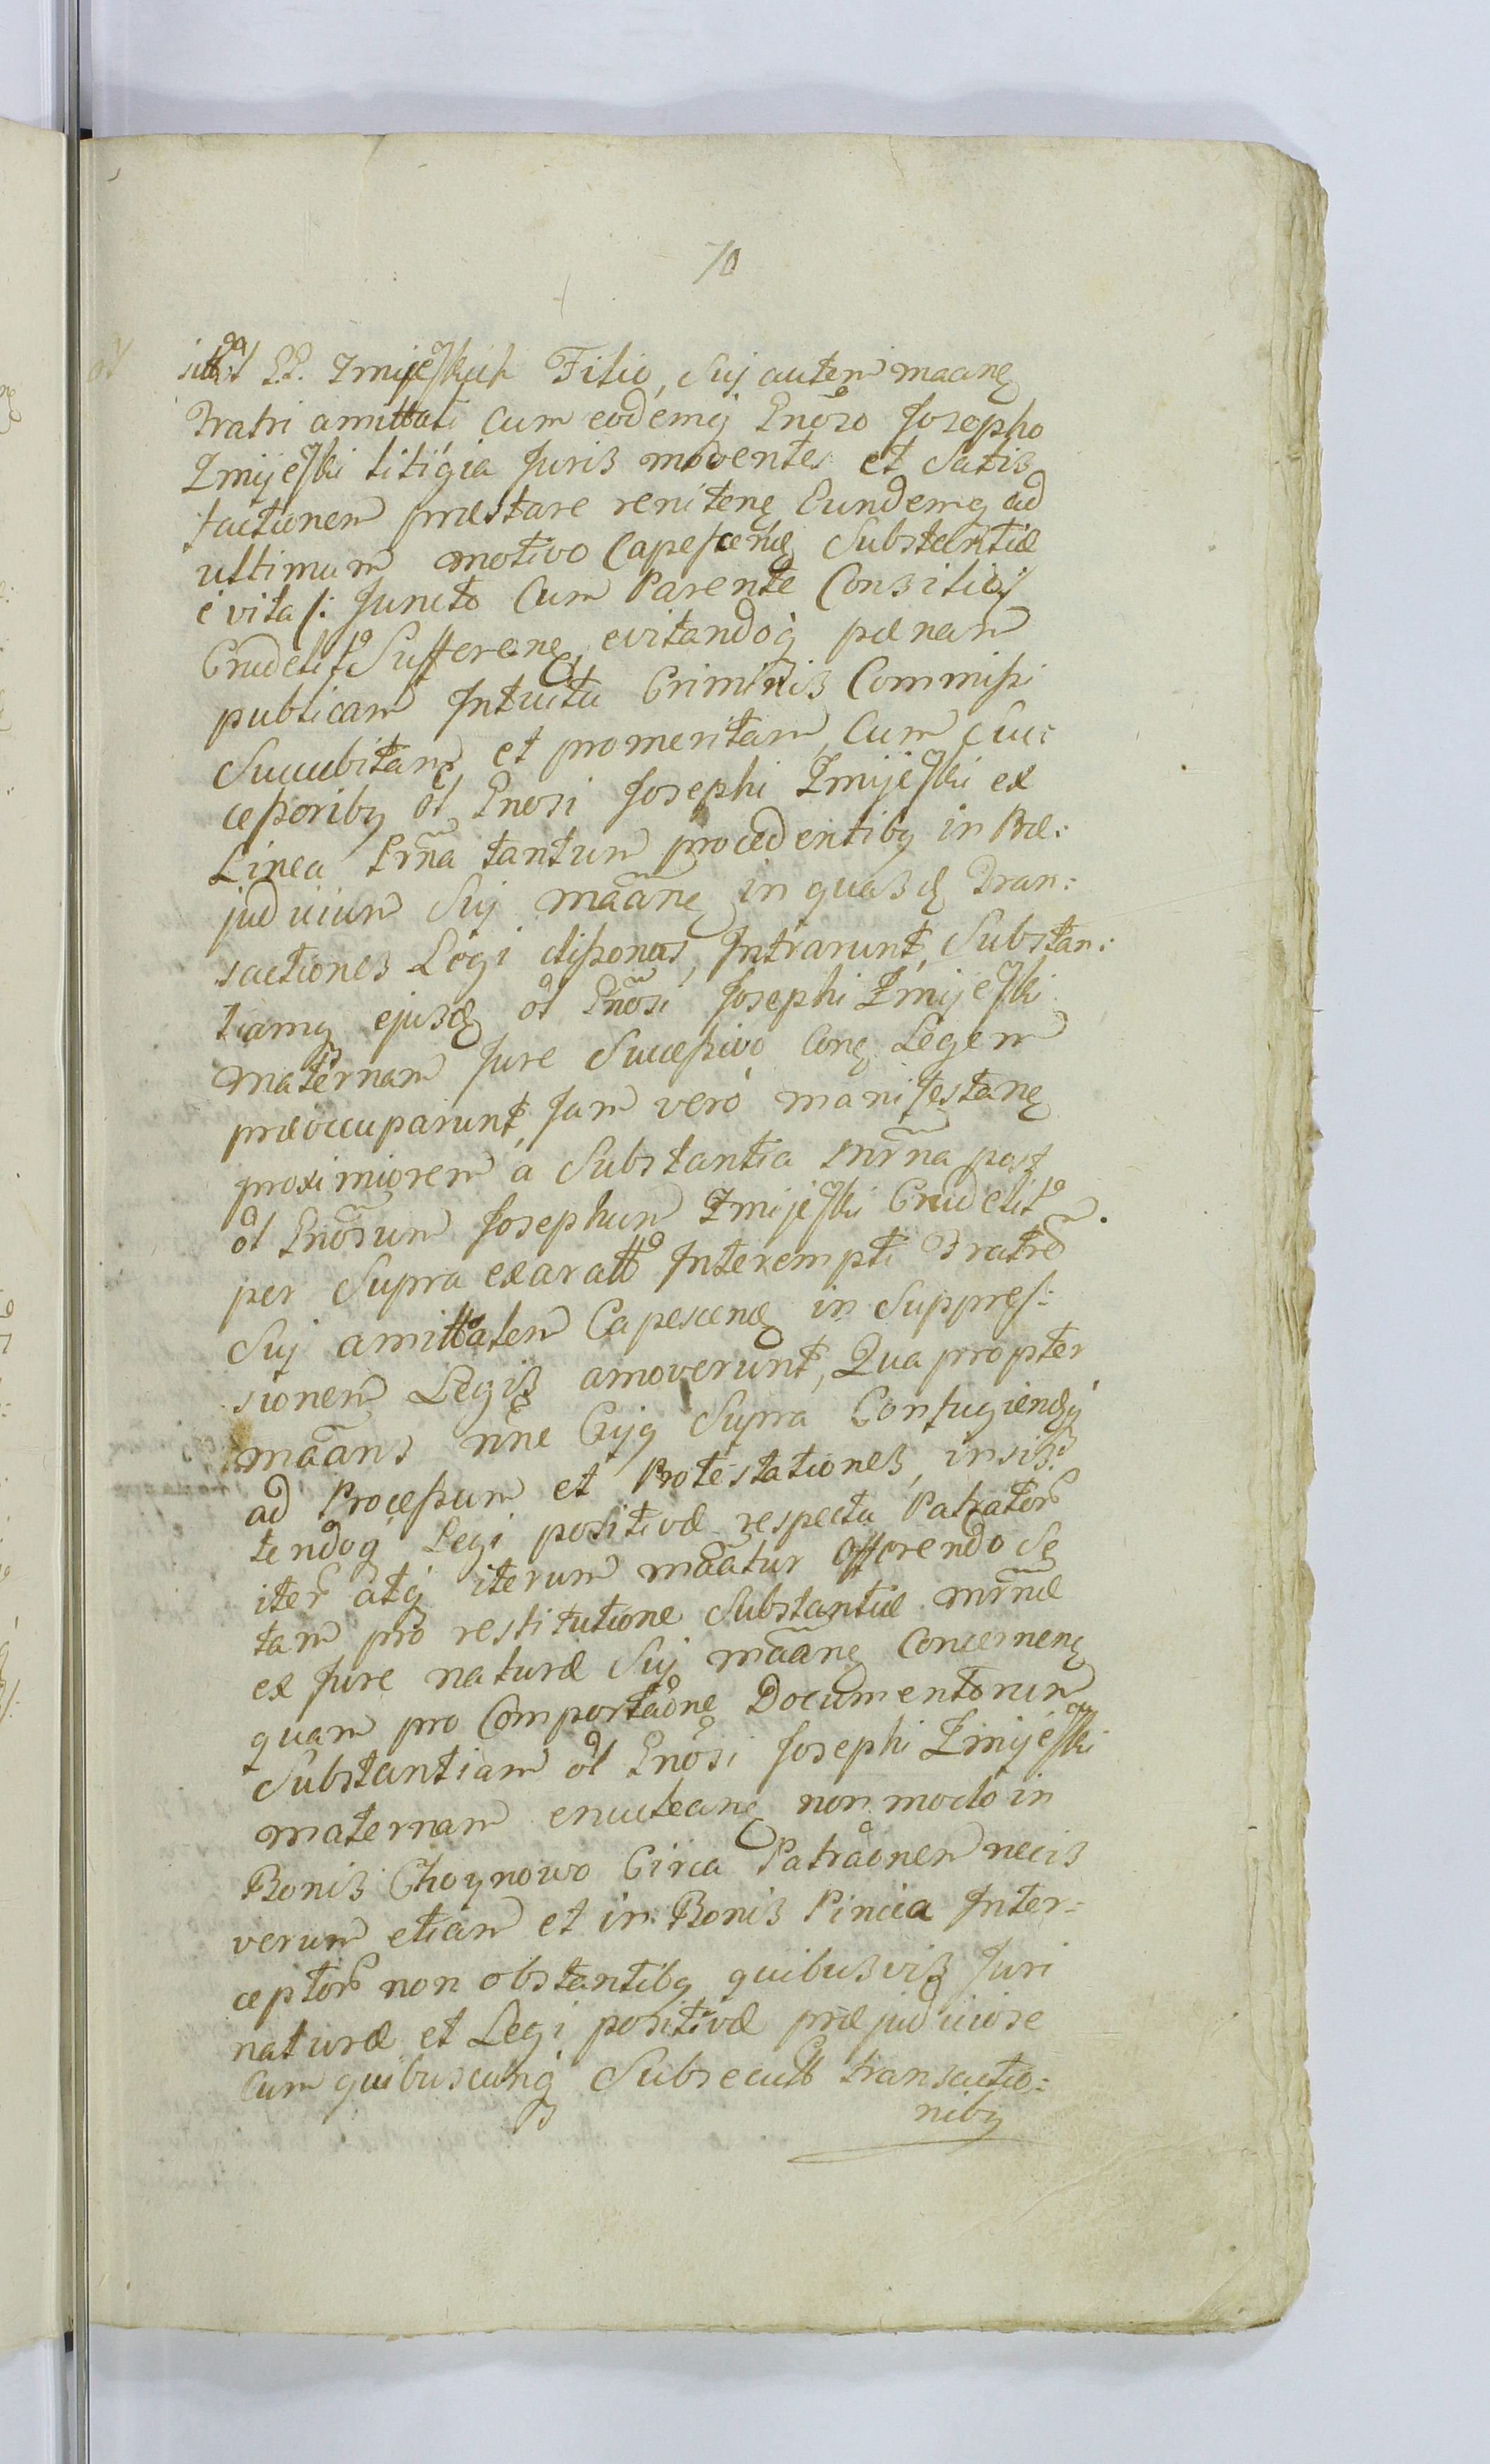 10
P.P. Zmijeskich Filio, Sui autem maanę
Fratri amittali Cum eodemq Gnoso Josepho
Zmijeski litigia Juris moventes et Satis
factionem præstare renitenę Eundemq ad
ultimum motivo Capescendę Substantiæ
è vita /: Juncto Cum Parente Consilio :/
Crudelitr Sufferenę evitandoq pænam
publicam Intuitu Criminis Commissi
Succubitam et promeritam, Cum Suc:
cessoribq ol Gnosi Josephi Zmijeski ex
Linea Prña tantum procedentibq in Præ:
judicium Sui mãanę in quasdę Tran:
sactiones Legi dissonas, Intrarunt, Substan:
tiamq ejusdę ol Gnosi Josephi Zmijeski
maternam Jure Successivo Conę Legem
præoccuparunt, Jam verò manifestanę
proximiorem a Substantia mrña post
ol Gnosum Josephum Zmijeski Crudelitr
per Supra exaratt Interempti Fratrem
Sui amittalem Capescendę in Suppres:
sionem Legis amoverunt, Qua propter
mãans nne Cujq Supra Confugiendę
ad Processum et Protestationes, insis:
tendoq Legi positivæ respectu Patrator
iter atq iterum mãatur Offerendo Se
tam pro restitutione Substantiæ mrñæ
ex Jure naturæ Sui mãanę Concernenę
quam pro Comportaõne Documentorum
Substantiam ol Gnosi Josephi Zmijeski
maternam enucleanę non modo in
Bonis Choynowo Circa Patraõnem necis
verum etiam et in Bonis Pincia Inter:
ceptor non obstantibq quibusvis Juri
naturæ et Legi positivæ præjudiciose
Cum quibuscunq Subsecutt transactio:
nibq